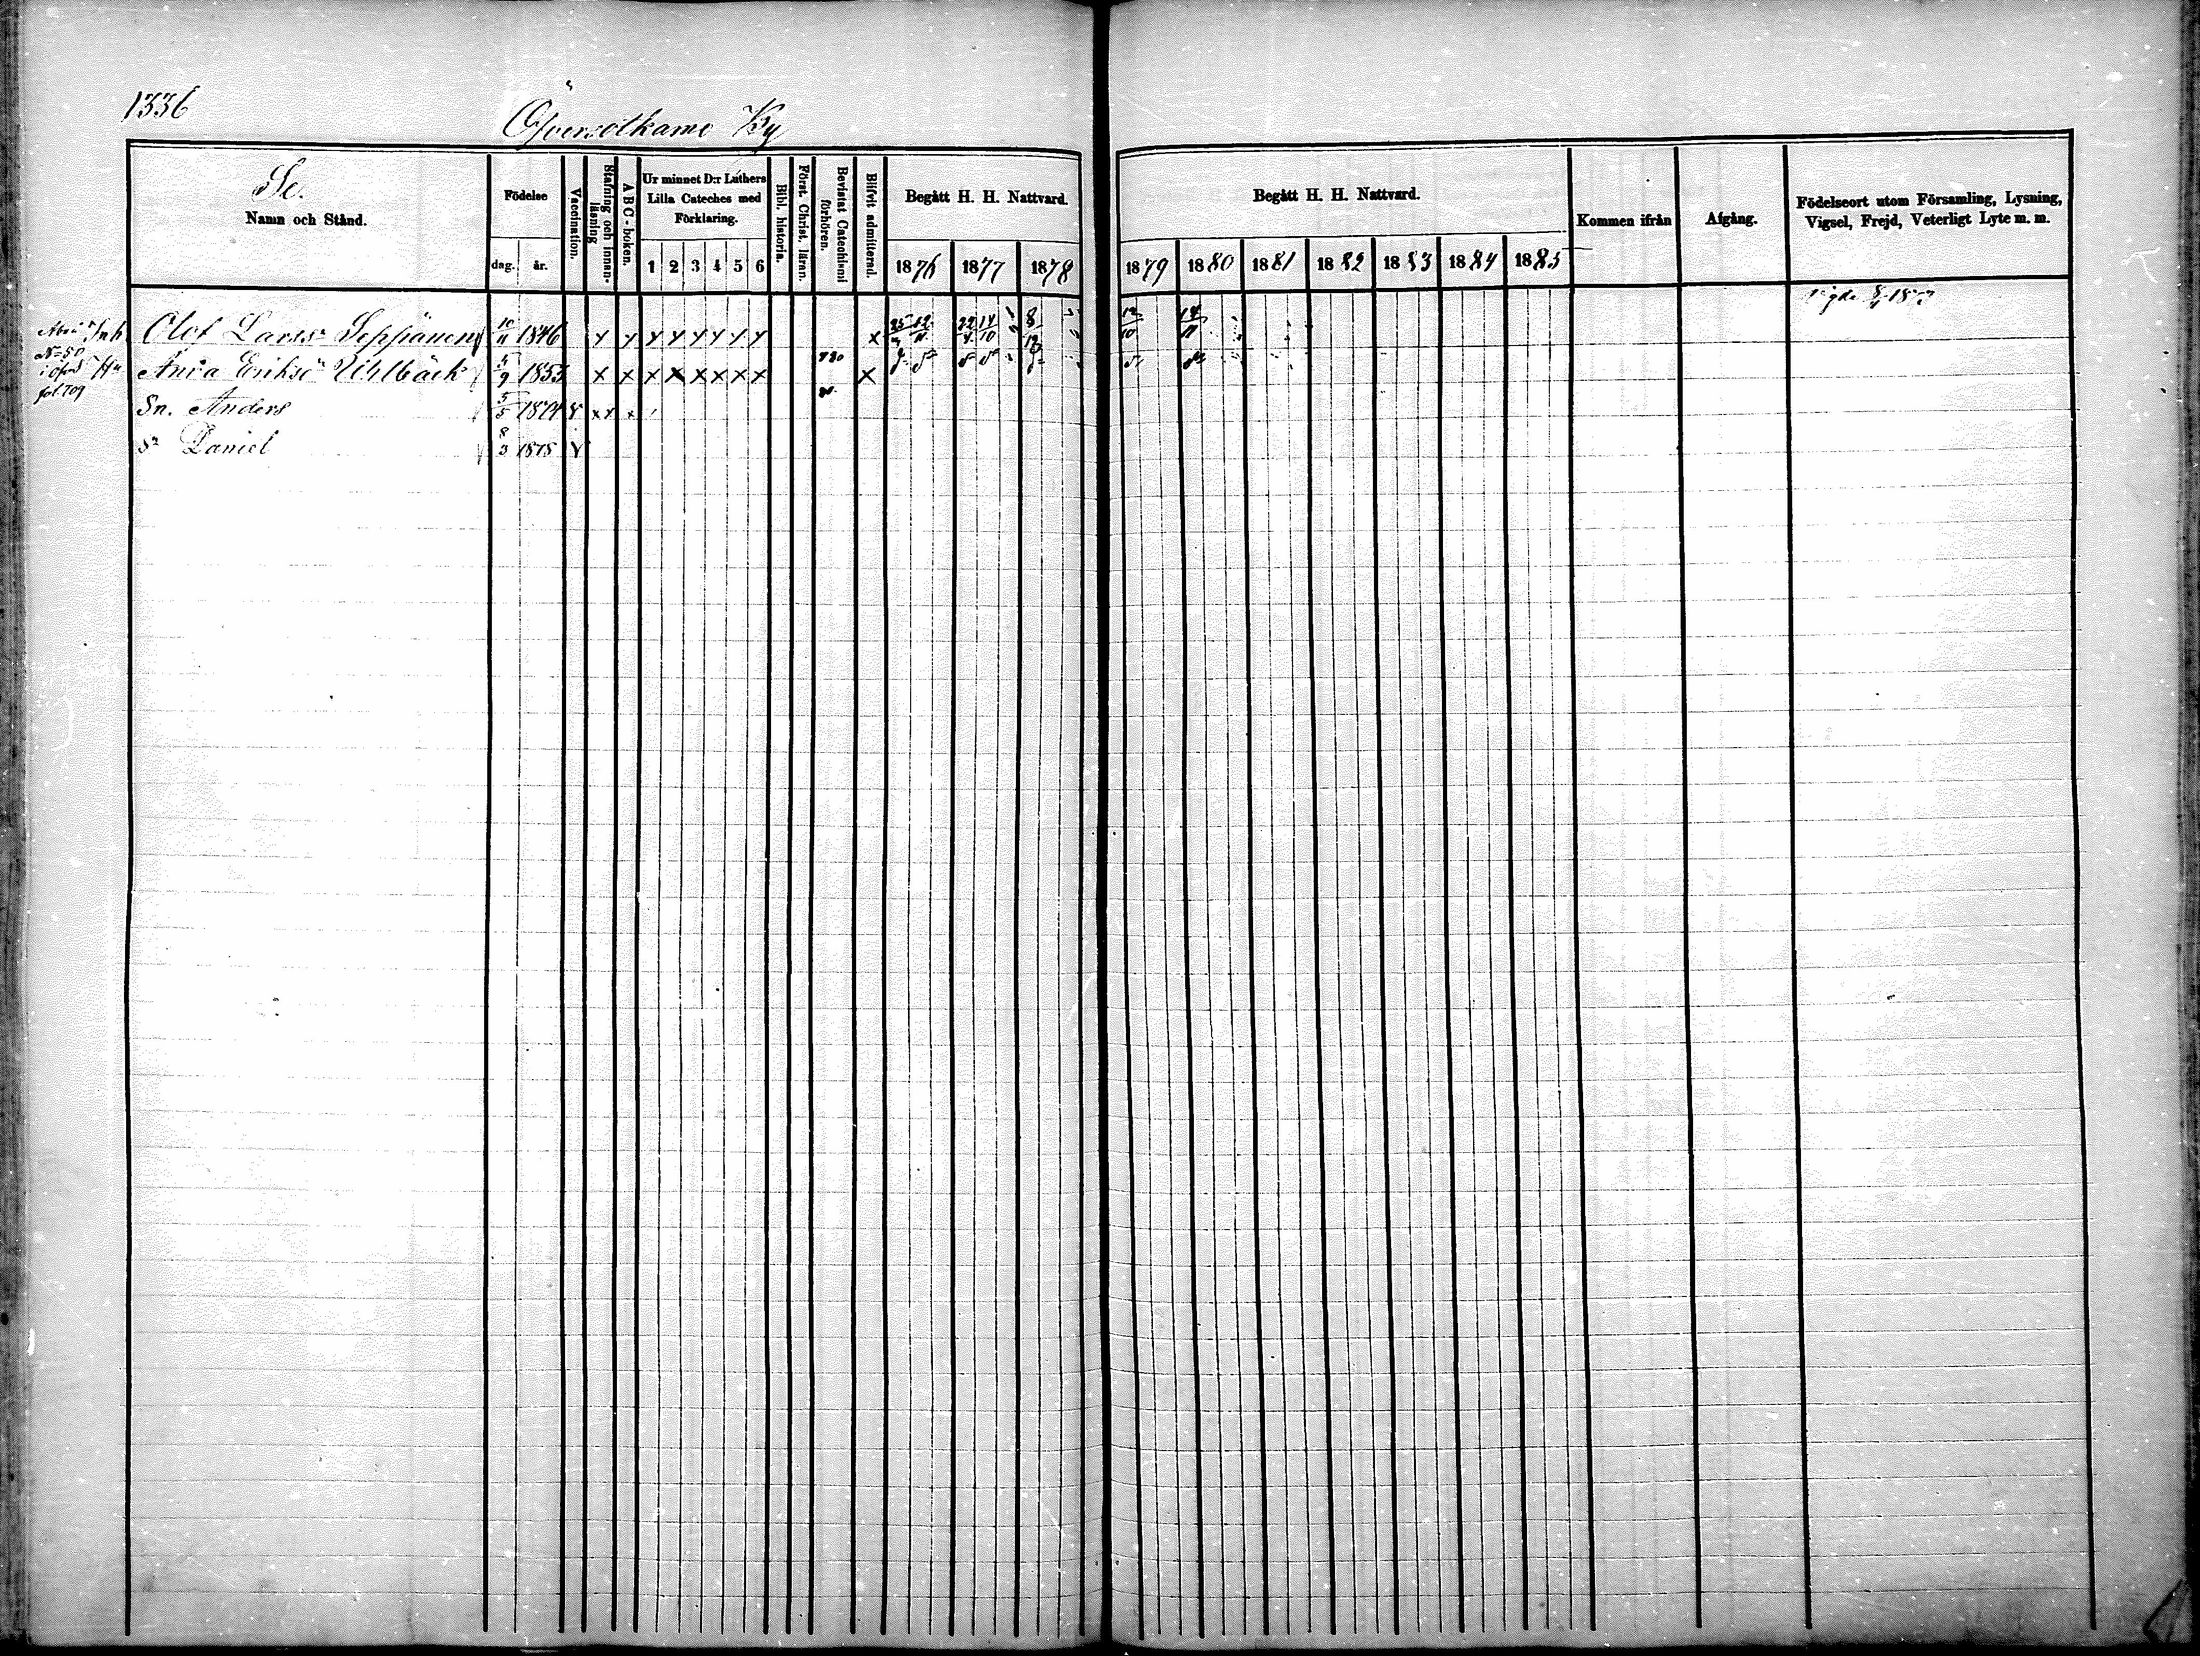 1336
Öfversotkamo By
Se.
Namn och Stånd.
Födelse
dag. år.
Vaccination.
Stafning och Innanläsning
ABC-boken.
Ur minnet D:r Luthers
Lilla Cateches med
Förklaring.
1 2 3 4 5 6
Bibl. historia.
Först. Christ. läran.
Bevistat Catechismi förhören.
Blifvit admitterad.
Begått H. H. Nattvard.
1876 1877 1878
Begått H. H. Nattvard.
1879 1880 1881 1882 1883 1884 1885
Kommen ifrån
Afgång.
Födelseort utom Församling, Lysning,
Vigsel, Frejd, Veterligt Lyte m. m.
Inh. Olof Larss. Seppänen 10/11 1846 x x x x x x x x x
No 50
Hu Anna Eriksd. Uhlbäck 5/9 1853 x x x x x x x x x
fol. 709
Sn. Anders 5/5 1874 v x x x
Sn Daniel 8/3 1878 v